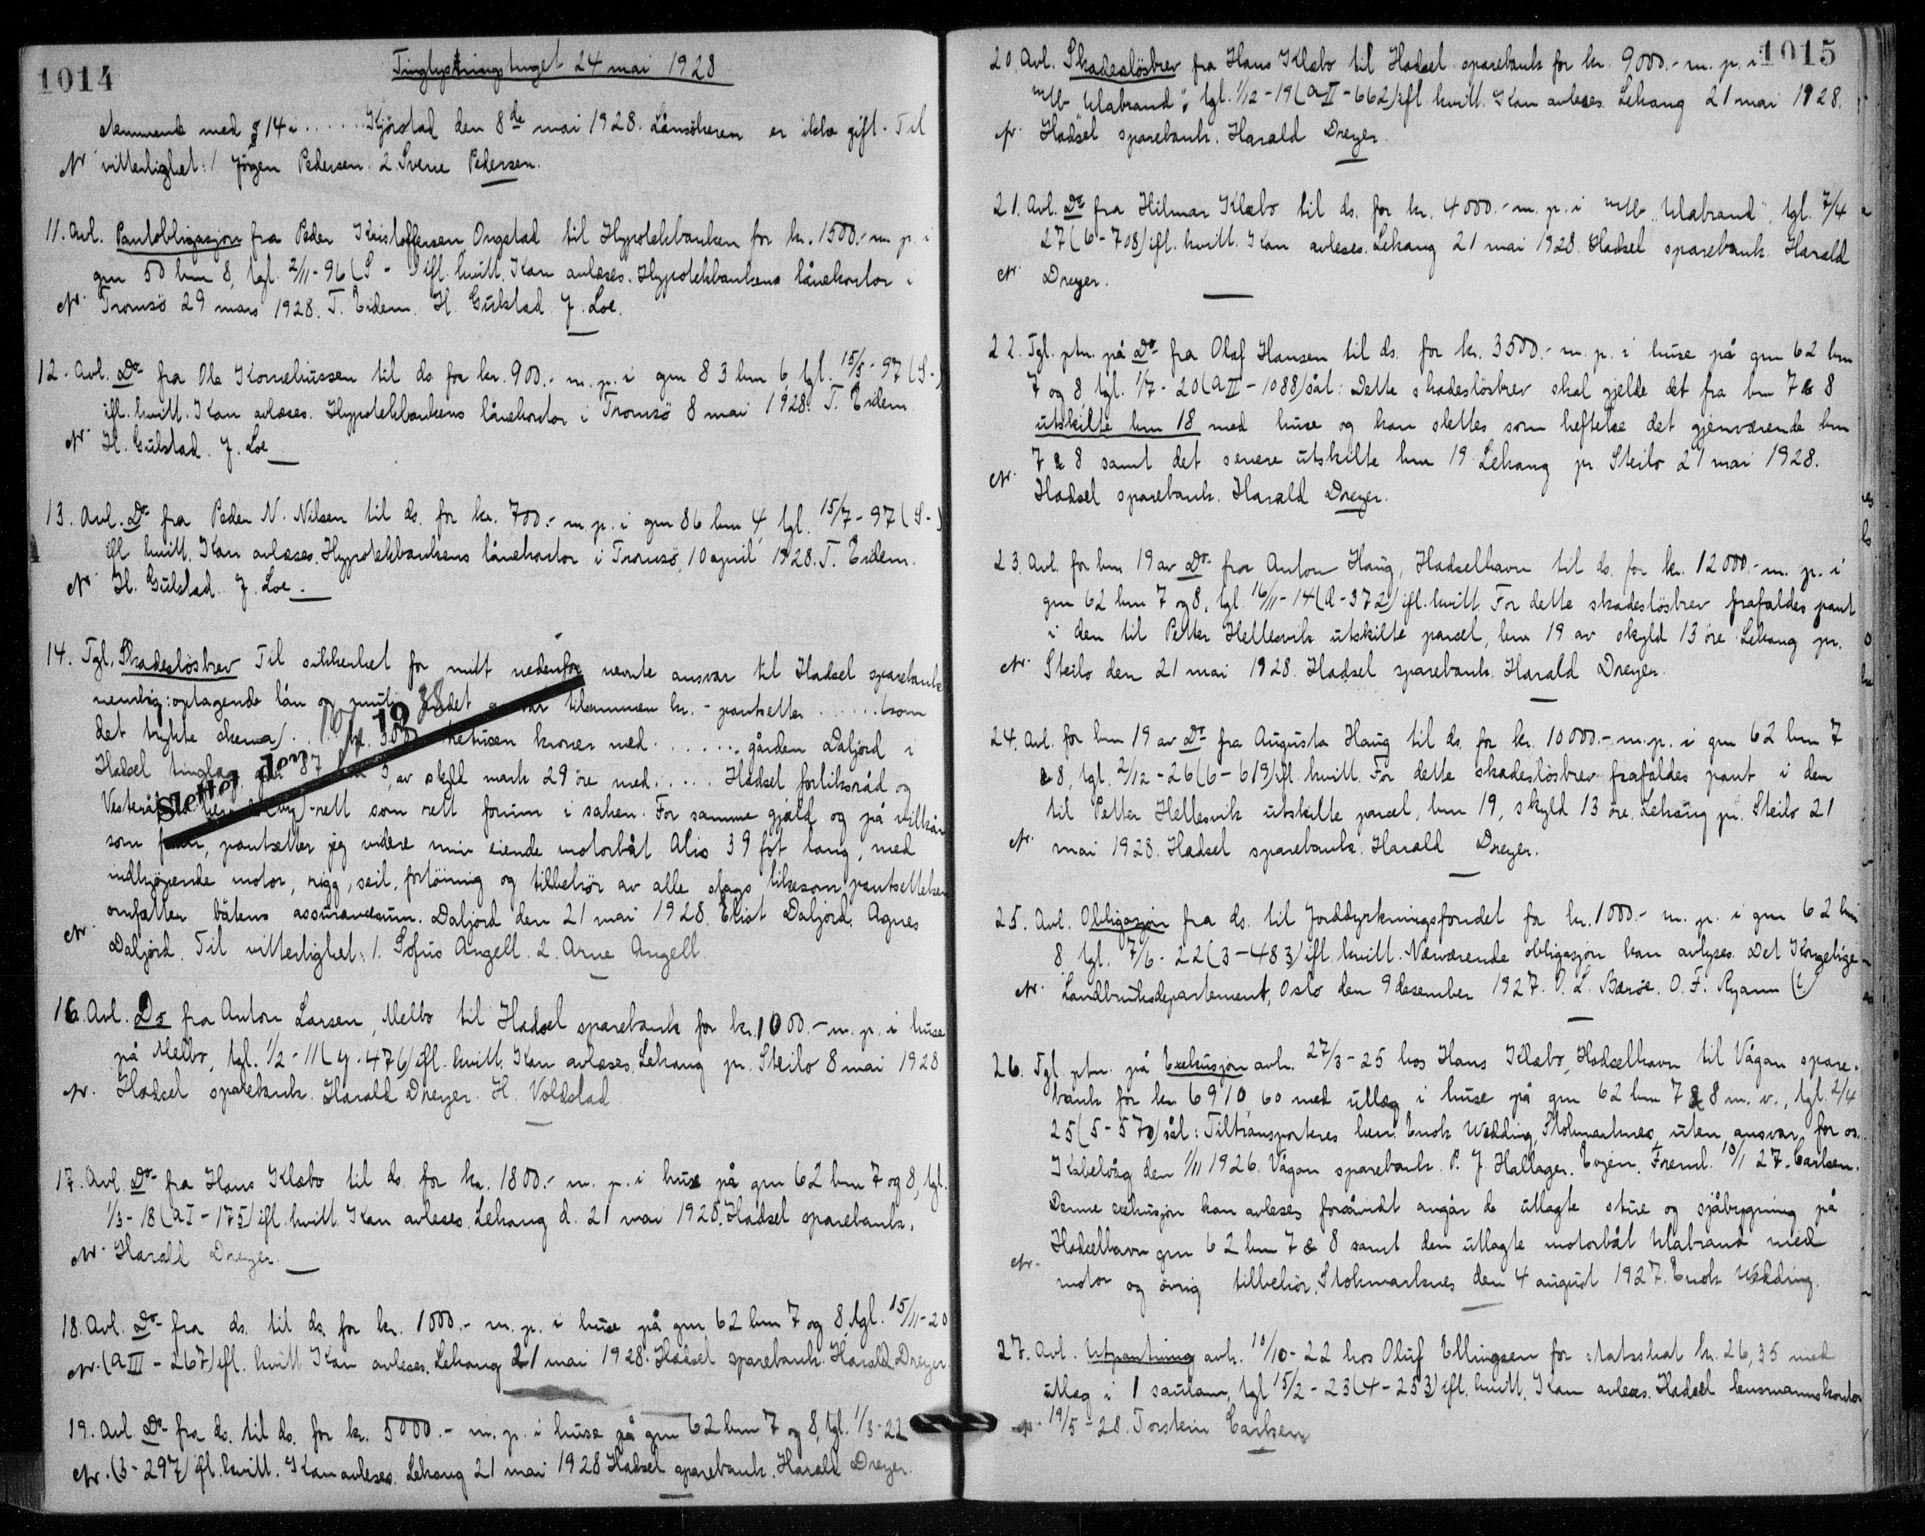 1014
Tinglysningstinget 24 mai 1928
stemmende med § 14 i ...... Kjörstad den 8de mai 1928. Lånsökeren er ikke gift. Til
N vitterlighet: 1 Jörgen Pedersen. 2. Sverre Pedersen.
11. Avl. Pantobligasjon fra Peder Kristoffersen Ongstad til Hypotekbanken for kr. 1500.- m. p. i
gnr 50 bnr 8, tgl. 2/11-96 (S - ) ifl. kvitt. Kan avlæses. Hypotekbankens lånekontor i
N. Tromsö 29 mars 1928. T. Eidem. H. Gulstad. J. Loe.
12. Avl. Do fra Ole Korneliussen til ds for kr. 900.- m. p. i gnr 83 bnr 6, tgl. 15/5-97 (S-)
ifl. kvitt. Kan avlæses. Hypotekbankens lånekontor i Tromsö 8 mai 1928. T. Eidem.
N. H. Gulstad. J. Loe
13. Avl. Do fra Peder N. Nilsen til ds. for kr. 700.- m. p. i gnr 86 bnr 4, tgl. 15/7-97 (S-)
ifl kvitt. Kan avlæses. Hypotekbankens lånekontor i Tromsö, 10 april 1928. T. Eidem.
N. H. Gulstad. J. Loe.
14. Tgl. Skadeslösbrev Til sikkerhet for mitt nedenfor nevnte ansvar til Hadsel sparebank
nemlig: optagende lån og mulig andet ansvar tilsammen kr. - pantsetter ...... (som
det trykte skema) ... kr. 3000 tretusen kroner med ...... gården Daljord i
Hadsel tinglag gnr 87 bnr 5, av skyld mark 29 öre med ..... Hadsel forliksråd og
Vesterålen (by)-rett som rett forum i saken. For samme gjæld og på vilkår
Slettet den 19
som foran, pantsetter jeg videre min eiende motorbåt Alis 39 fot lang, med
indkjöpende motor, rigg, seil, fortöinig og tilbehör av alle slags likesom pantsettelsen
omfatter båtens assuransesum. Daljord den 21 mai 1928. Eliot Daljord. Agnes
N. Daljord. Til vitterlighet: 1. Sofus Angell. 2. Arne Angell
16. Avl. Do fra Anton Larsen, Melbo til Hadsel sparebank for kr. 1000.- m. p. i huse
på Melbo, tgl. 1/2-11 (y-476) ifl. kvitt. Kan avleses. Lekang pr. Steilo 8 mai 1928
N. Hadsel sparebank. Harald Dreyer. H. Voldstad
17. Avl. Do fra Hans Klæbo til ds. for kr. 1800.- m. p. i huse på gnr 62 bnr 7 og 8, tgl.
1/3-18 (aI-175) ifl. kvitt. Kan avleses. Lekang d. 21 mai 1928. Hadsel sparebank.
N. Harald Dreyer.
18. Avl. Do fra ds. til ds. for kr. 1000.- m. p. i huse på gnr 62 bnr 7 og 8, tgl. 15/11-20
N. (aIII-267) ifl. kvitt. Kan avleses. Lekang 21 mai 1928. Hadsel sparebank. Harald Dreyer
19. Avl Do fra ds. til ds. for kr. 5000.- m. p. i huse på gnr 62 bnr 7 og 8, tgl. 1/3-22
N. (3-297) ifl. kvitt. Kan avleses. Lekang 21 mai 1928 Hadsel sparebank. Harald Dreyer.
1015
20. Avl. Skadeslösbrev fra Hans Klæbo til Hadsel sparebank for kr. 9000.- m. p. i
m/b "Ulabrand", tgl. 1/12-19 (aII-662) ifl. kvitt. Kan avleses. Lekang 21 mai 1928.
N. Hadsel sparebank. Harald Dreyer.
21. Avl. Do fra Hilmar Klæbo til ds. for kr. 4000.- m. p. i m/b "Ulabrand", tgl. 7/4
27 (6-708) ifl. kvitt. Kan avleses. Lekang 21 mai 1928. Hadsel sparebank. Harald
N. Dreyer.
22. Tgl. ptn. på Do fra Olaf Hansen til ds. for kr. 3500.- m. p. i huse på gnr 62 bnr
7 og 8 tgl. 1/7-20 (aII-1088) sål: Dette skadeslösbrev skal gjelde det fra bnr 7 & 8
utskilte bnr 18 med huse og kan slettes som heftelse det gjenværende bnr
7 & 8 samt det senere utskilte bnr 19. Lekang pr. Steilo 21 mai 1928.
N. Hadsel sparebank. Harald Dreyer.
23. Avl. for bnr 19 av Do fra Anton Haug, Hadselhavn til ds. for kr. 12000.- m. p. i
gnr 62 bnr 7 og 8, tgl. 16/11-14 (A-372) ifl. kvitt. For dette skadeslösbrev frafaldes pant
i den til Petter Hellesvik utskilte parcel, bnr 19 av skyld 13 öre. Lekang pr.
N. Steilo den 21 mai 1928. Hadsel sparebank. Harald Dreyer.
24. Avl. for bnr 19 av Do fra Augusta Haug til ds. for kr. 10000.- m. p. i gnr 62 bnr 7
& 8, tgl. 2/12-26 (6-619) ifl. kvitt. For dette skadeslösbrev frafaldes pant i den
til Petter Hellesvik utskilte parcel, bnr 19, skyld 13 öre. Lekang pr. Steilo 21
N. mai 1928. Hadsel sparebank. Harald Dreyer.
25. Avl. Obligasjon fra ds. til Jorddyrkningsfondet for kr. 1000.- m. p. i gnr 62 bnr
8 tgl. 7/6-22 (3-483) ifl. kvitt. Nærværende obligasjon kan avlyses. Det Kongelige
N. Landbruksdepartement, Oslo den 9 desember 1927. O. L. Bærøe. O. F. Ryann
26. Tgl. ptn. på Exekusjon avh. 27/3-25 hos Hans Klæbo, Hadselhavn til Vågan spare-
bank for kr 6910,60 med utlæg i huse på gnr 62 bnr 7 & 8 m. v., tgl. 2/4
25 (5-570) sål: Tiltransporteres herr Enok Wædding, Stokmarknes, uten ansvar for os.
Kabelvåg den 1/11 1926. Vågan sparebank. P. J. Hallager. Evjen. Freml. 10/1 27. Carlsen.
Denne exekusjon kan avleses forsåvidt angår de utlagte stue og sjåbygning på
Hadselhavn gnr 62 bnr 7 & 8 samt den utlagte motorbåt Ulabrand med
N. motor og övrig tilbehör. Stokmarknes den 4 august 1927. Enok Wædding.
27. Avl. Utpantning avh. 10/10-22 hos Oluf Ellingsen for statsskat kr. 26,35 med
utlæg i 1 saulam, tgl 15/2-23 (4-253) ifl. kvitt. Kan avleses. Hadsel lensmannskontor
N. 19/5-28. Torstein Carlsen